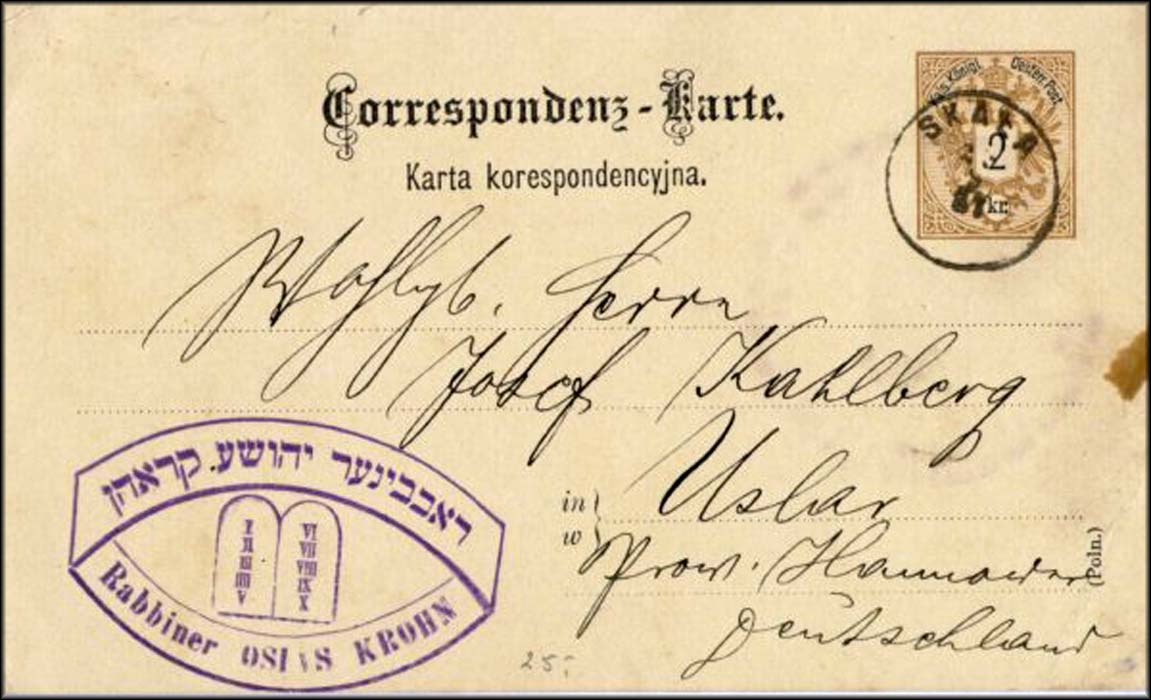 Correspondenz-Karte.
Karta korespondencyjna.
Königl. Oesterr. Post
SKAŁA
2
87
kr.
Wohlgb. Herrn
Josef Kahlberg
in
w
Uslar
Prov. Hannover
Deutschland
(Poln.)
ראבבינער יהושע קראהן
I VI
II VII
III VIII
IIII IX
V X
Rabbiner OSIAS KROHN
25.-